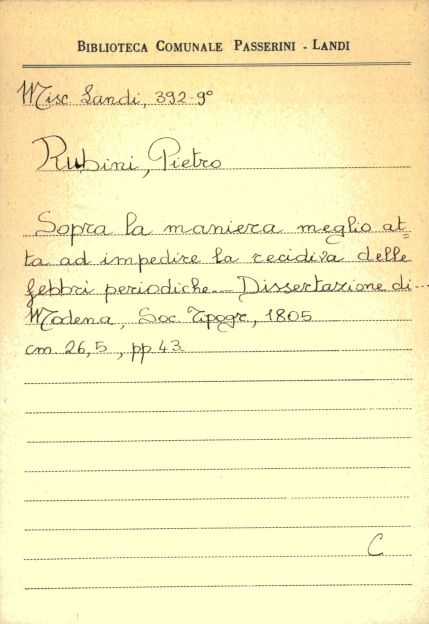 BIBLIOTECA COMUNALE PASSERINI - LANDI
Misc Landi, 392-9°
Rubini, Pietro
Sopra la maniera meglio at=
ta ad impedire la recidiva delle
febbri periodiche.- Dissertazione di...
Modena, Soc Tipogr, 1805
cm 26,5, pp 43
C